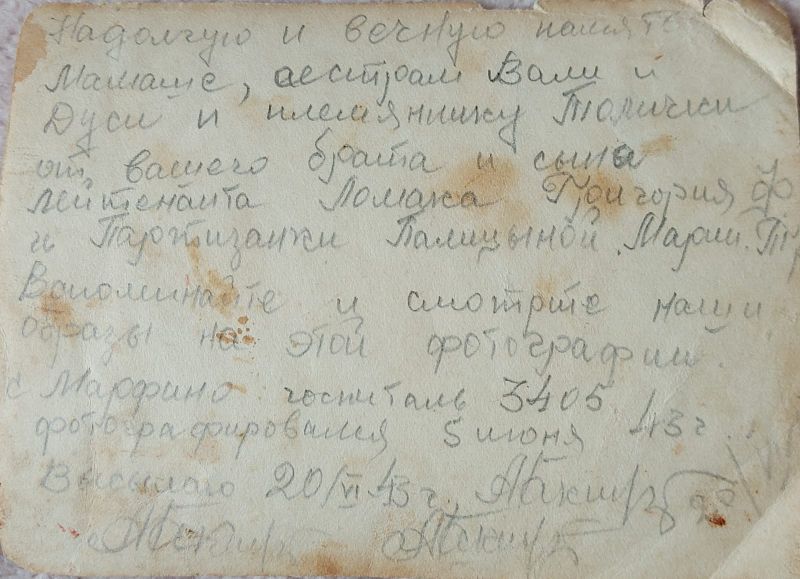 На долгую и вечную память
Мамаше, сестрам Вали и
Дуси и племяннику Толички
от вашего брата и сына
лейтенанта Ломака Григория Ф
и Партизанки Палицыной. Марии. Тр
Вспоминайте и смотрте наши
образы на этой фотографии.
с Марфино госпиталь 3405
фотографировался 5 июня 43 г.
Высылаю 20/VI 43 г.